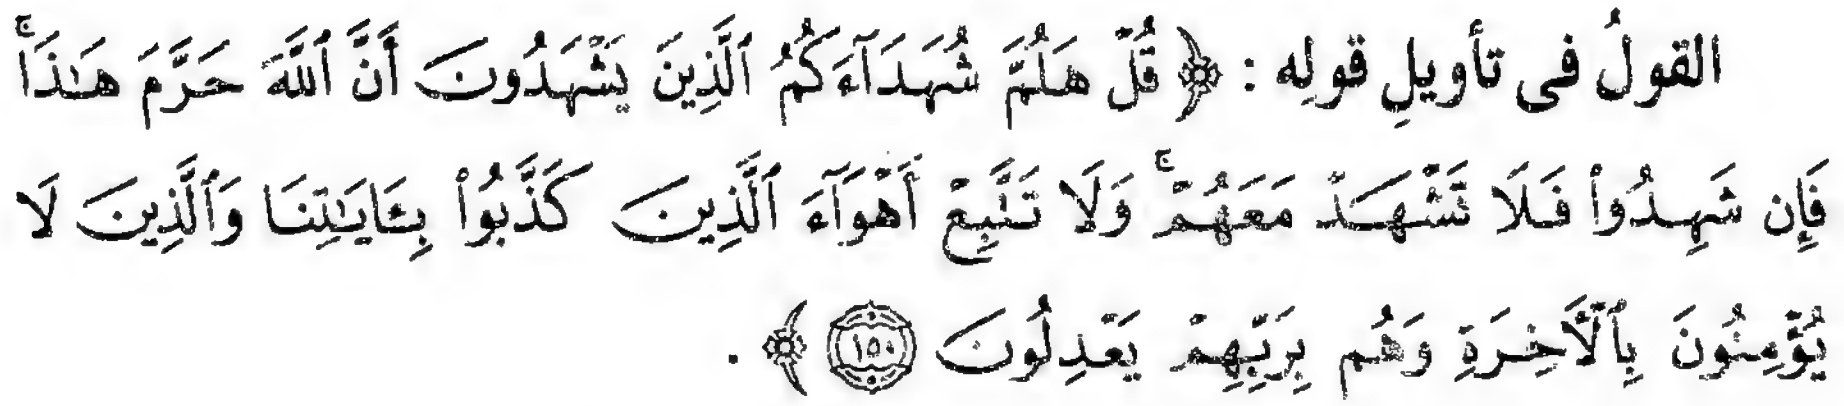 القولُ فى تأويلِ قولِه : ﴿ قُلْ هَلُمَّ شُهَدَآءَكُمُ ٱلَّذِينَ يَشْهَدُونَ أَنَّ ٱللَّهَ حَرَّمَ هَـٰذَاۖ
فَإِن شَهِدُوا۟ فَلَا تَشْهَدْ مَعَهُمْۚ وَلَا تَتَّبِعْ أَهْوَآءَ ٱلَّذِينَ كَذَّبُوا۟ بِـَٔايَـٰتِنَا وَٱلَّذِينَ لَا
يُؤْمِنُونَ بِٱلْـَٔاخِرَةِ وَهُم بِرَبِّهِمْ يَعْدِلُونَ ١٥٠ ﴾ .